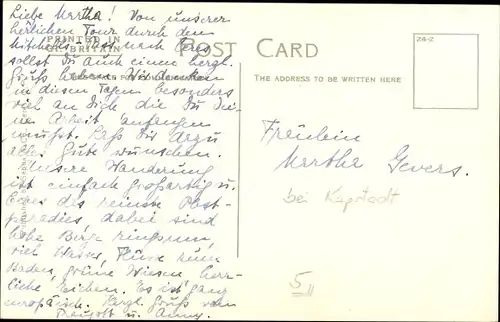 Liebe Martha! Von unserer
herrlichen Tour durch den
Mitchells Pass nach Ceres
sollst Du auch einen herzl.
Gruß haben. Wir denken
in diesen Tagen besonders
viel an Dich die Du Dei-
ne Arbeit anfangen
mußt. Laß Dir dazu
alles Gute wünschen.
Unsere Wanderung
ist einfach großartig u.
Ceres das reinste Obst-
paradies dabei sind
hohe Berge ringsum,
viel Wasser, Flüsse zum
Baden, grüne Wiesen, herr-
liche Eichen. Es ist ganz
europäisch. Herzl. Gruß von
Traugott u. Anny.
PRINTED IN
GT. BRITAIN
POST CARD
THE ADDRESS TO BE WRITTEN HERE
24-Z
Fräulein
Martha Gevers.
bei Kapstadt
5